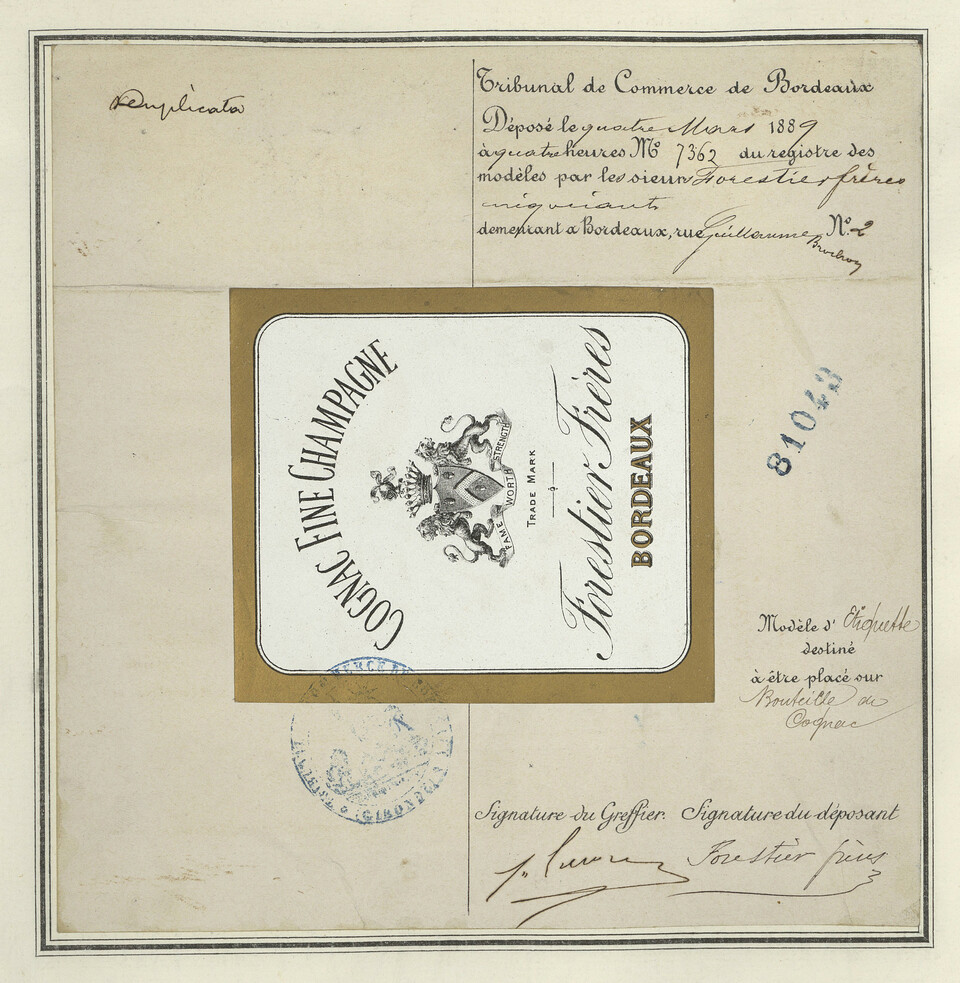 Duplicata
Tribunal de Commerce de Bordeaux
Déposé le quatre Mars 1889
à quatre heures No 7362 du registre des
modèles par les sieurs Forestier frères
négociants
demeurant à Bordeaux, rue Guillaume No 2
Brochon
COGNAC FINE CHAMPAGNE
FAME WORTH STRENGTH
TRADE MARK
Forestier Frères
BORDEAUX
81043
Modèle d' Etiquette
destiné
à être placé sur
Bouteille de
Cognac
GIRONDE
Signature du Greffier. Signature du déposant
Forestier frères